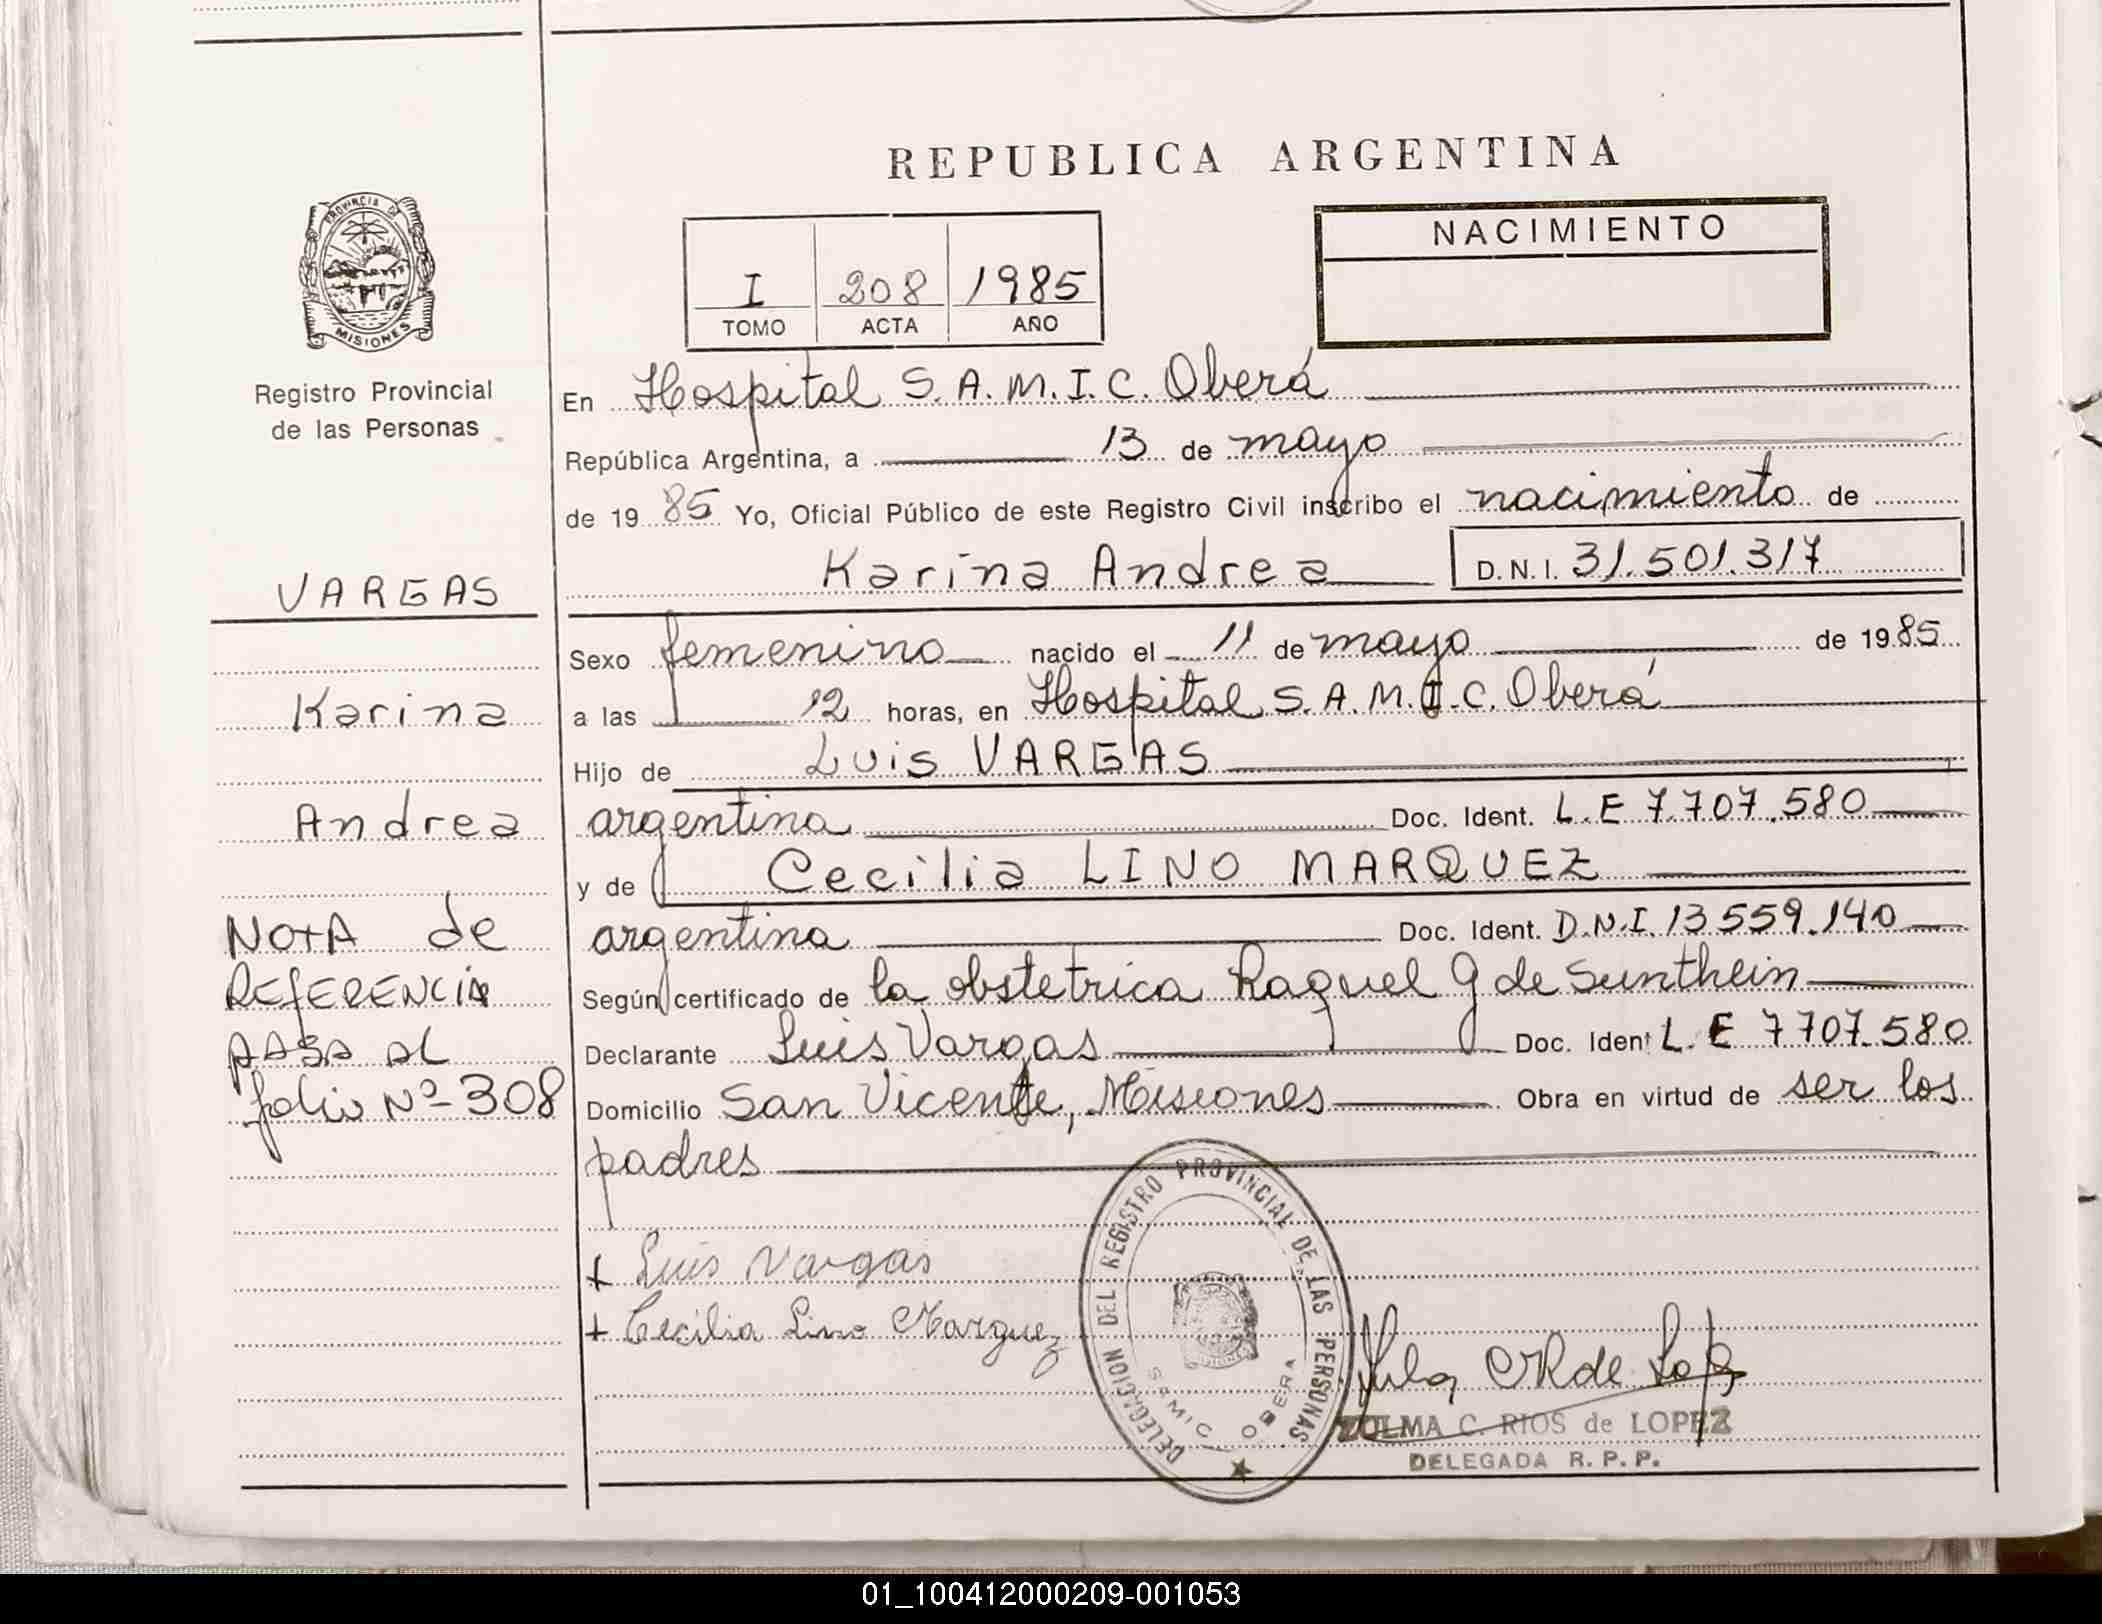 REPUBLICA ARGENTINA
PROVINCIA DE MISIONES
Registro Provincial
de las Personas
I 208 1985
TOMO ACTA AÑO
NACIMIENTO
En Hospital S.A.M.I.C. Oberá
República Argentina, a 13 de mayo
de 1985 Yo, Oficial Público de este Registro Civil inscribo el nacimiento de
Karina Andrea D.N.I. 31.501.317
VARGAS
Karina
Andrea
NOTA de
REFERENCIA
PASA AL
folio Nº-308
Sexo femenino nacido el 11 de mayo de 1985
a las 12 horas, en Hospital S.A.M.I.C. Oberá
Hijo de Luis VARGAS
argentina Doc. Ident. L.E 7.707.580
y de Cecilia LINO MARQUEZ
argentina Doc. Ident. D.N.I. 13.559.140
Según certificado de la obstetrica Raquel G de Sunthein
Declarante Luis Vargas Doc. Ident L.E 7707.580
Domicilio San Vicente, Misiones Obra en virtud de ser los
padres
+ Luis Vargas
+ Cecilia Lino Marquez
DELEGACION DEL REGISTRO PROVINCIAL DE LAS PERSONAS
SAMIC OBERA
ZULMA C. RIOS de LOPEZ
DELEGADA R. P. P.
01_100412000209-001053